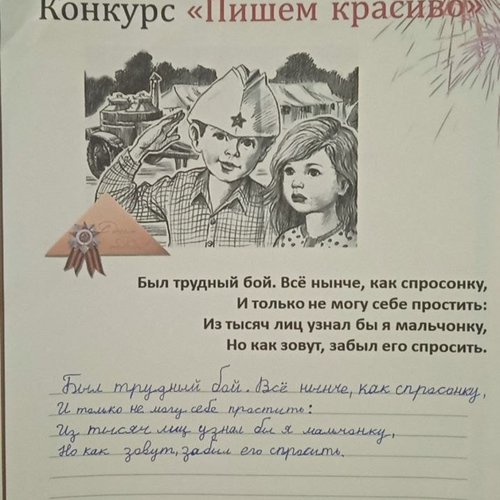 Конкурс «Пишем красиво»
Был трудный бой. Всё нынче, как спросонку,
И только не могу себе простить:
Из тысяч лиц узнал бы я мальчонку,
Но как зовут, забыл его спросить.
Был трудный бой. Всё нынче, как спросонку,
И только не могу себе простить:
Из тысяч лиц узнал бы я мальчонку,
Но как зовут, забыл его спросить.